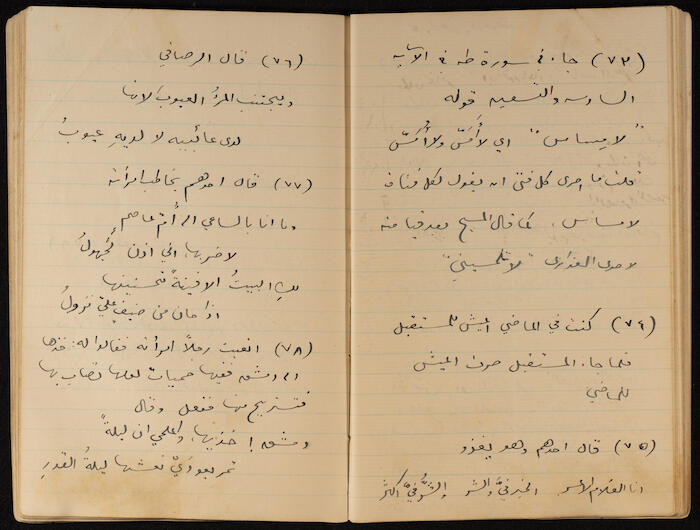 (٧٣) جاء في سورة طه في الآية
السادسة والتسعين قوله
"لا مساس" اي لا أَمَسَّ ولا أُمَسّ
قلت ما احرى كل فتى ان يقول لكل فتاة
لا مساس . كما قال المسيح بعد قيامته
لاحدى العذارى "لا تلمسيني"
(٧٤) كنت في الماضي أعيش للمستقبل
فلما جاء المستقبل صرت اعيش
للماضي
(٧٥) قال احدهم وهو يغزو
انا الغلام الأعسر الخير فيَّ والشر والشرُّ فيَّ اكثر
(٧٦) قال الرصافي
ويجتنب المرءُ العيوب لانها
لدى عائبيه لا لديهِ عيوبُ
(٧٧) قال احدهم يخاطب امرأته
وما انا بالساعي الى أُم عاصم
لاضربها اني اذن لَجَهولُ
لكِ البيتُ الا فينةً تحسنينها
اذا حان من ضيفٍ عليّ نزولُ
(٧٨) اتعبت رجلاً امرأته فقالوا له: خذها
الى دمشق ففيها حميات لعلها تصاب بها
فتستريح منها ففعل وقال
دمشق! خذيها واعلمي ان ليلةً
تمر بعودَيْ نعشها ليلةُ القدرِ